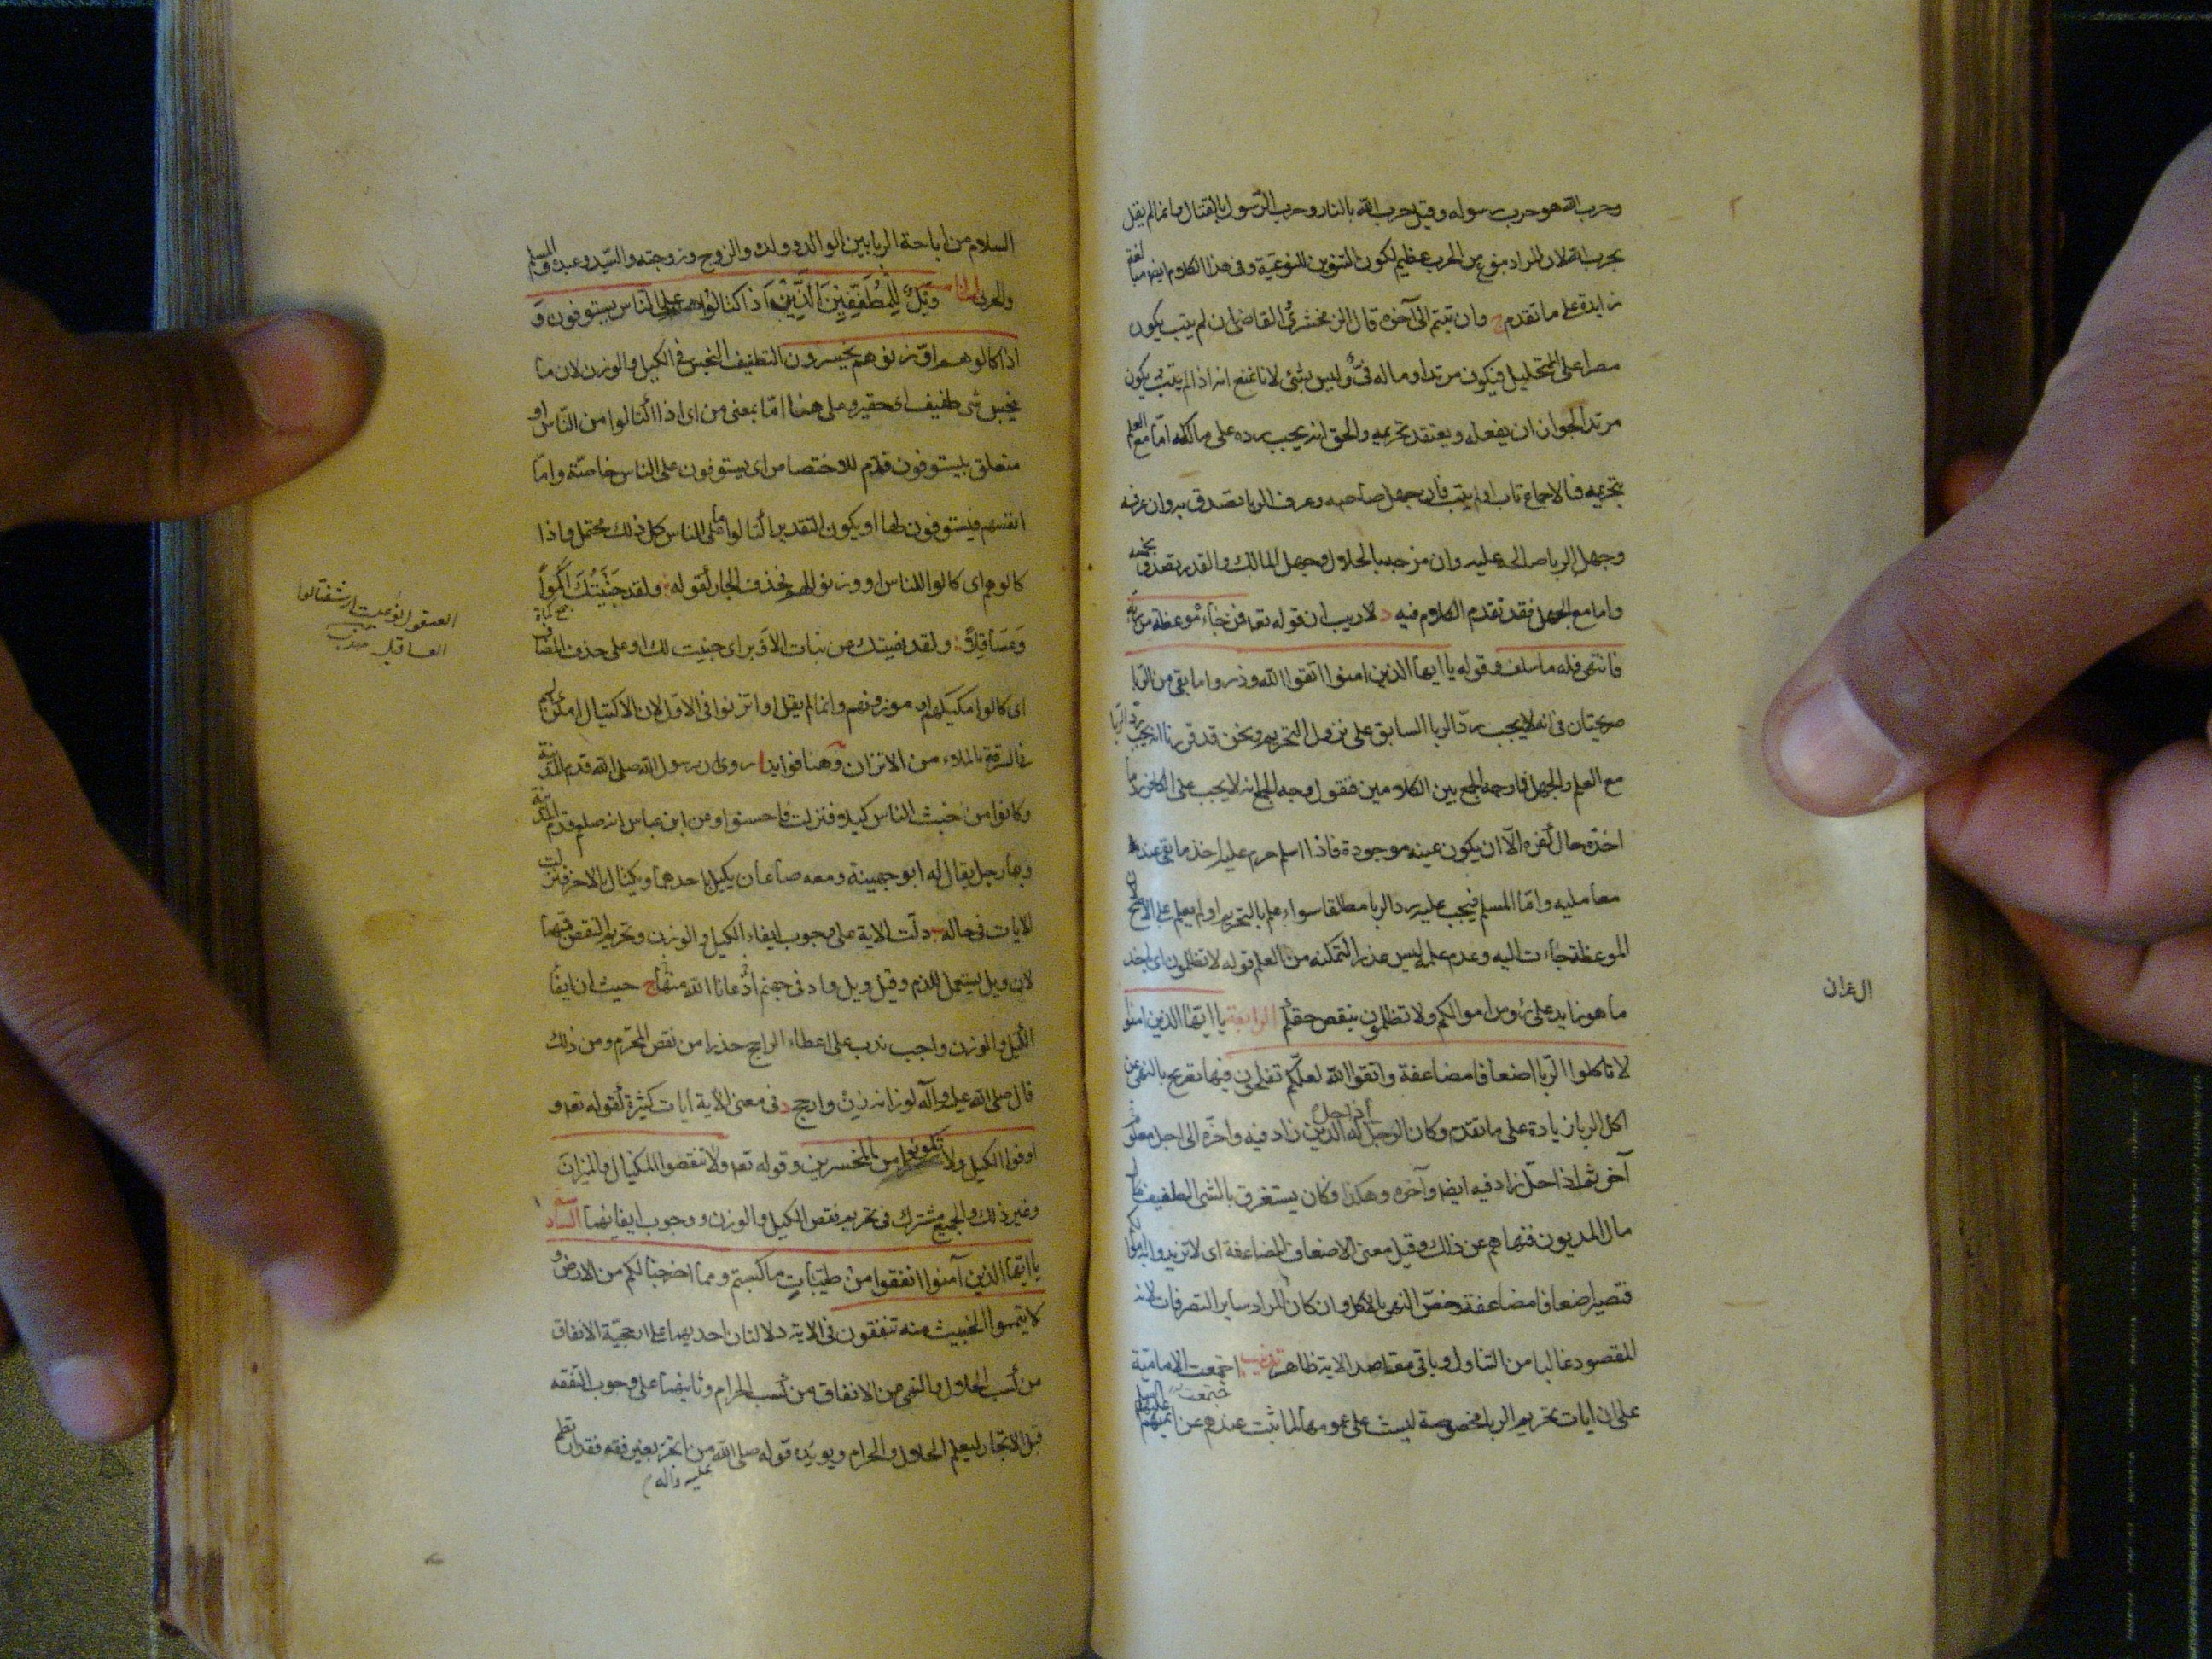 وحرب الله هو حرب رسوله وقيل حرب الله بالنار وحرب الرسول بالقتال وانما لم يقل
بحرب الله لان المراد بنوع من الحرب عظيم لكون التنوين للنوعية وفى هذا الكلام ايضا
زايدة على ما تقدم ج وان تبتم الى آخره قال الزمخشرى القاضى ان لم يتب يكون
مصرا على التحليل فيكون مرتدا وماله فئ وليس بشئ لانا نمنع انه اذا لم يتب يكون
مرتدا لجواز ان يفعله ويعتقد تحريمه والحق انه يجب رده على مالكه امّا مع العلم
بتحريمه فبالاجماع تاب او لم يتب فان جهل صاحبه وعرف الربا تصدق به وان عرفه
وجهل الربا صالحه عليه وان مزجه بالحلال وجهل المالك والقدر تصدق بخمسه
واما مع الجهل فقد تقدم الكلام فيه د لا ريب ان قوله تعه فمن جاءه موعظة من ربه
فانتهى فله ما سلف وقوله يا ايها الذين امنوا اتقوا الله وذروا ما بقى من الربا
صريحتان فى انه لا يجب ردّ الربا السابق على نزول التحريم ونحن قد قررنا انه يجب ردّ الربا
مع العلم والجهل فما وجه الجمع بين الكلامين فنقول وجه الجمع انه لا يجب على الكافر رد ما
اخذه حال كفره الّا ان يكون عينه موجودة فاذا اسلم حرم عليه اخذ ما بقى عند
معامليه وامّا المسلم فيجب عليه رد الربا مطلقا سواء علم بالتحريم او لم يعلم على الاصح
الموعظة جاءت اليه وعدم علمه ليس عذرا لتمكنه من العلم قوله لا تظلمون اى باخذ
ما هو زايد على رؤس اموالكم ولا تظلمون بنقص حقكم الرابعة يا ايها الذين امنوا
القران
لا تاكلوا الرّبا اضعافا مضاعفة واتقوا الله لعلّكم تفلحون فيها تصريح بالنهى عن
اكل الربا زيادة على ما تقدم وكان الرجل اذا حل له الدين زاد فيه واخّره الى اجل معلوم
آخر ثم اذا حلّ زاد فيه ايضا وآخره وهكذا فكان يستغرق بالشى الطفيف
مال المديون فنهاهم عن ذلك وقيل معنى الاضعاف المضاعفة اى لا تزيدوا به اموالكم
فتصير اضعافا مضاعفة وخصّ النهى بالاكل وان كان المراد ساير التصرفات لانه
المقصود غالبا من التناول وباقى مقاصد الاية ظاهر تذنيب اجتمعت الامامية
على ان ايات تحريم الربا مخصوصة ليست على عمومها لما ثبت عندهم عن ائمتهم عليهم
السلام من اباحة الربا بين الوالد وولده والزوج وزوجته والسّيد وعبده والمسلم
والحربى وَيْلٌ لِلْمُطَفِّفِينَ الَّذِينَ اذا كتالوا على الناس يستوفون وَ
اذا كالوهم او وّزنوهم يخسرون التطفيف البخس فى الكيل والوزن لان ما
يبخس شى طفيف اى حقير وعلى هنا امّا بمعنى من اى اذا اكتالوا من النّاس او
متعلق بيستوفون قدّم للاختصاص اى يستوفون على الناس خاصّة وامّا
انفسهم فيستوفون لها او يكون التقدير اكتالوا ما على الناس كل ذلك محتمل واذا
كالوهم اى كالوا للناس او وزنوا لهم فحذف الجار كقوله ولقد جَنَيْتُكَ اَكْمُواً
وَعَسَاقِلاً ولقد نهيتك عن نبات الاَوْبَر اى جنيت لك او على حذف المضاف
العساقيل
اى كالوا مكيلهم او موزونهم وانما لم يقل او اتزنوا فى الاوّل لان الاكتيال امكن
فى السرقة بالملاء من الاتزان وهنا فوايد ا روى ان رسول الله صلى الله قدم المدينة
وكانوا من اخبث الناس كيلا فنزلت فاحسنوا وعن ابن عباس انه صلعم قدم المدينة
وبها رجل يقال له ابو جهينة ومعه صاعان يكيل باحدهما ويكتال بالاخر فنزلت
الايات فى حاله ب دلّت الاية على وجوب ايفاء الكيل والوزن وتحريم النقص فيهما
لان ويل يستعمل للذم وقيل ويل واد فى جهنم اعاذنا الله منها ج حيث ان ايفا
الكيل والوزن واجب ندب على اعطاء الراجح حذرا من نقص المحرّم ومن ذلك
قال صلى الله عليه وآله لوزان زِنْ وارجح د فى معنى الاية ايات كثيرة كقوله تعه و
اوفوا الكيل ولا تكونوا من المخسرين وقوله تعه ولا تنقصوا المكيال والميزان
وغير ذلك والجميع مشترك فى تحريم نقص الكيل والوزن ووجوب ايفايهما السادسة
يا ايّها الذين آمنوا انفقوا من طيّباتِ ما كسبتم ومما اخرجنا لكم من الارض و
لا تيمموا الخبيث منه تنفقون فى الاية دلالتان احديهما على ارجحيّة الانفاق
من كسب الحلال والنهى عن الانفاق من كسب الحرام وثانيهما على وجوب التفقه
قبل الاتجار ليعلم الحلال والحرام ويويّده قوله صلى الله عليه واله من اتّجر بغير فقه فقد ارتطم